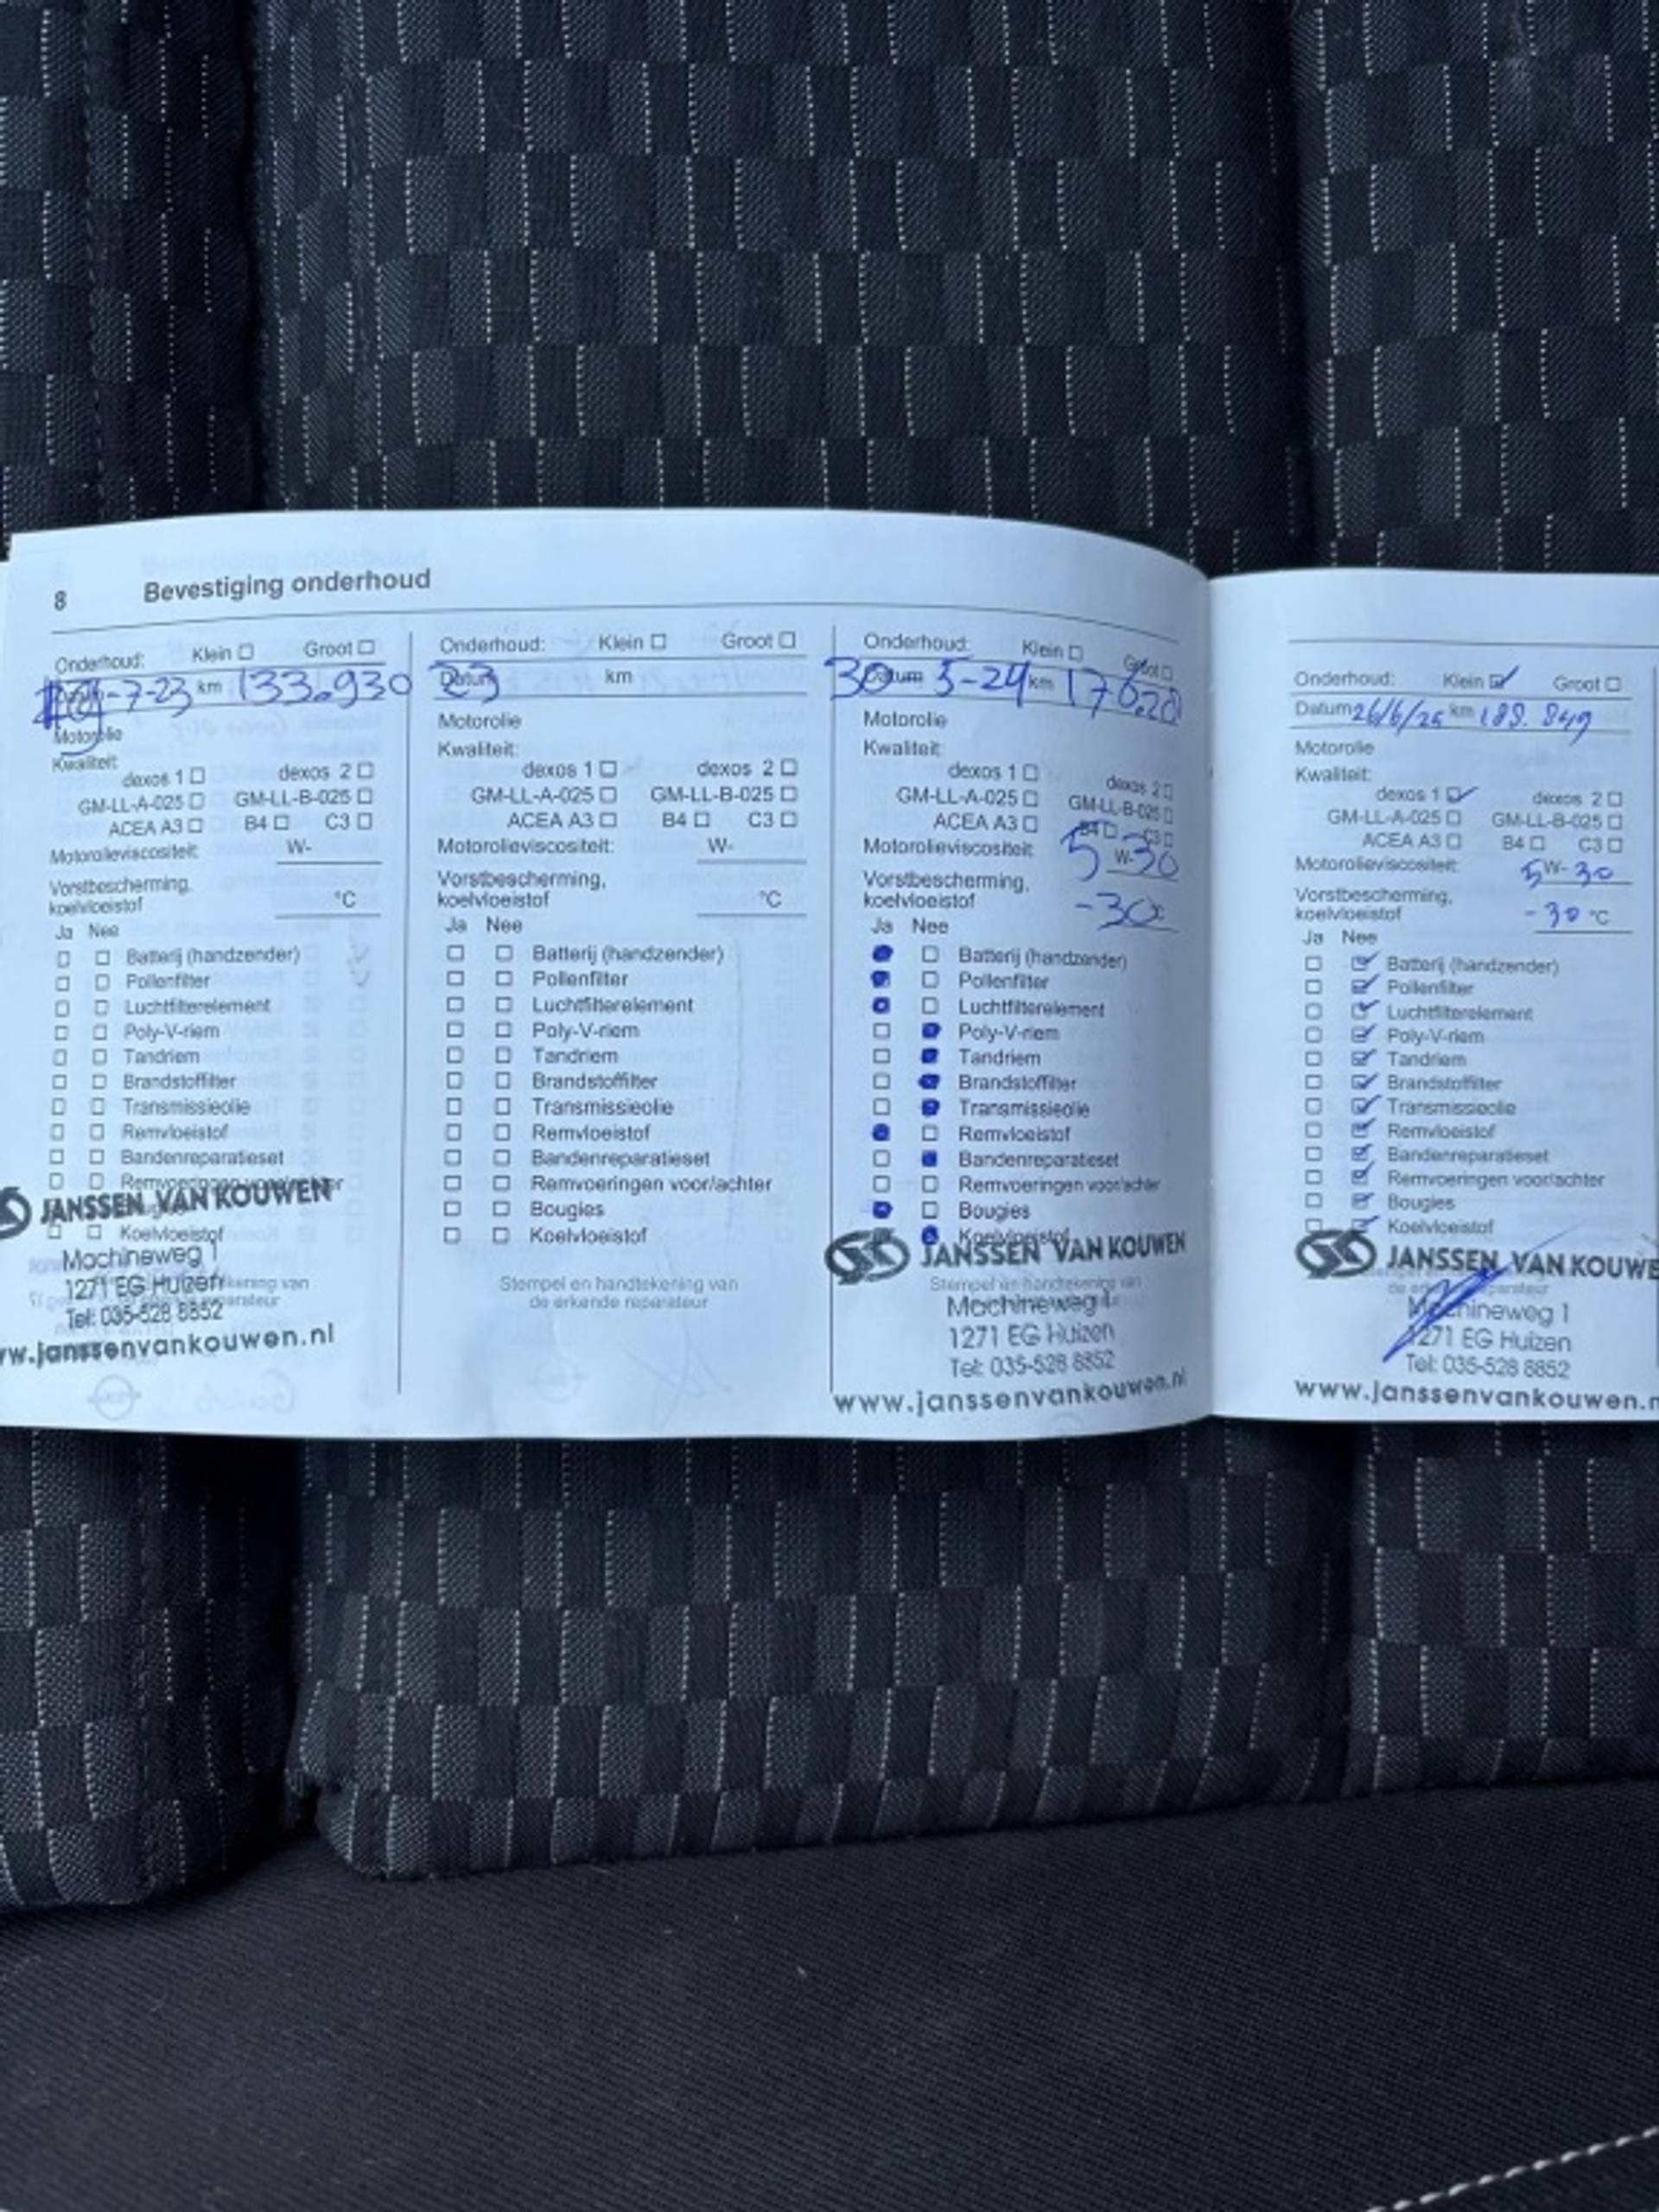 8 Bevestiging onderhoud
Onderhoud: Klein Groot
-7-23 km 133.930
Motorolie
Kwaliteit:
dexos 1 dexos 2
GM-LL-A-025 GM-LL-B-025
ACEA A3 B4 C3
Motorolieviscositeit: W-
Vorstbescherming,
koelvloeistof °C
Ja Nee
Batterij (handzender)
Pollenfilter
Luchtfilterelement
Poly-V-riem
Tandriem
Brandstoffilter
Transmissieolie
Remvloeistof
Bandenreparatieset
JANSSEN VAN KOUWEN
Koelvloeistof
Machineweg 1
1271 EG Huizen
Tel: 035-528 8852
www.janssenvankouwen.nl
Onderhoud: Klein Groot
Datum 23 km
Motorolie
Kwaliteit:
dexos 1 dexos 2
GM-LL-A-025 GM-LL-B-025
ACEA A3 B4 C3
Motorolieviscositeit: W-
Vorstbescherming,
koelvloeistof °C
Ja Nee
Batterij (handzender)
Pollenfilter
Luchtfilterelement
Poly-V-riem
Tandriem
Brandstoffilter
Transmissieolie
Remvloeistof
Bandenreparatieset
Remvoeringen voor/achter
Bougies
Koelvloeistof
Stempel en handtekening van
de erkende reparateur
Onderhoud: Klein Groot
Datum 30 5-24 km
Motorolie
Kwaliteit:
dexos 1 dexos 2
GM-LL-A-025 GM-LL-B-025
ACEA A3 B4 C3
Motorolieviscositeit: 5 W-30
Vorstbescherming,
koelvloeistof -30
Ja Nee
Batterij (handzender)
Pollenfilter
Luchtfilterelement
Poly-V-riem
Tandriem
Brandstoffilter
Transmissieolie
Remvloeistof
Bandenreparatieset
Remvoeringen voor/achter
Bougies
Koelvloeistof
JANSSEN VAN KOUWEN
Stempel en handtekening van
Machineweg 1
1271 EG Huizen
Tel: 035-528 8852
www.janssenvankouwen.nl
Onderhoud: Klein Groot
Datum 26/6/25 km 188.849
Motorolie
Kwaliteit:
dexos 1 dexos 2
GM-LL-A-025 GM-LL-B-025
ACEA A3 B4 C3
Motorolieviscositeit: 5 W- 30
Vorstbescherming,
koelvloeistof -30 °C
Ja Nee
Batterij (handzender)
Pollenfilter
Luchtfilterelement
Poly-V-riem
Tandriem
Brandstoffilter
Transmissieolie
Remvloeistof
Bandenreparatieset
Remvoeringen voor/achter
Bougies
Koelvloeistof
JANSSEN VAN KOUWE
Machineweg 1
1271 EG Huizen
Tel: 035-528 8852
www.janssenvankouwen.n